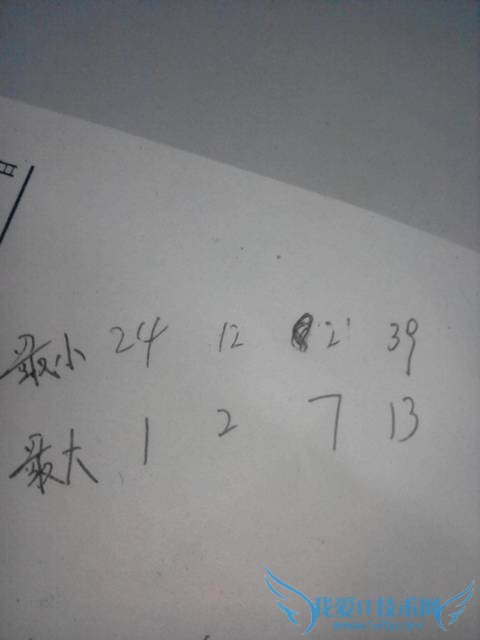 最小 24 12 21 39
最大 1 2 7 13
我爱IT技术网